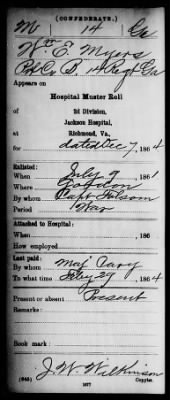 (CONFEDERATE.)
M 14 Ga
Wm. E. Myers
Pvt Co B, 14 Regt Ga
Appears on
Hospital Muster Roll
2d Division,
Jackson Hospital,
Richmond, Va.,
for dated Dec 7, 1864
Enlisted:
When July 9, 1861
Where Gordon
By whom Capt Folsom
Period War
Attached to Hospital:
When , 186
How employed
Last paid:
By whom Maj Cary
To what time July 29, 1864
Present or absent Present
Remarks:
Book mark:
J. W. Wilkinson
Copyist.